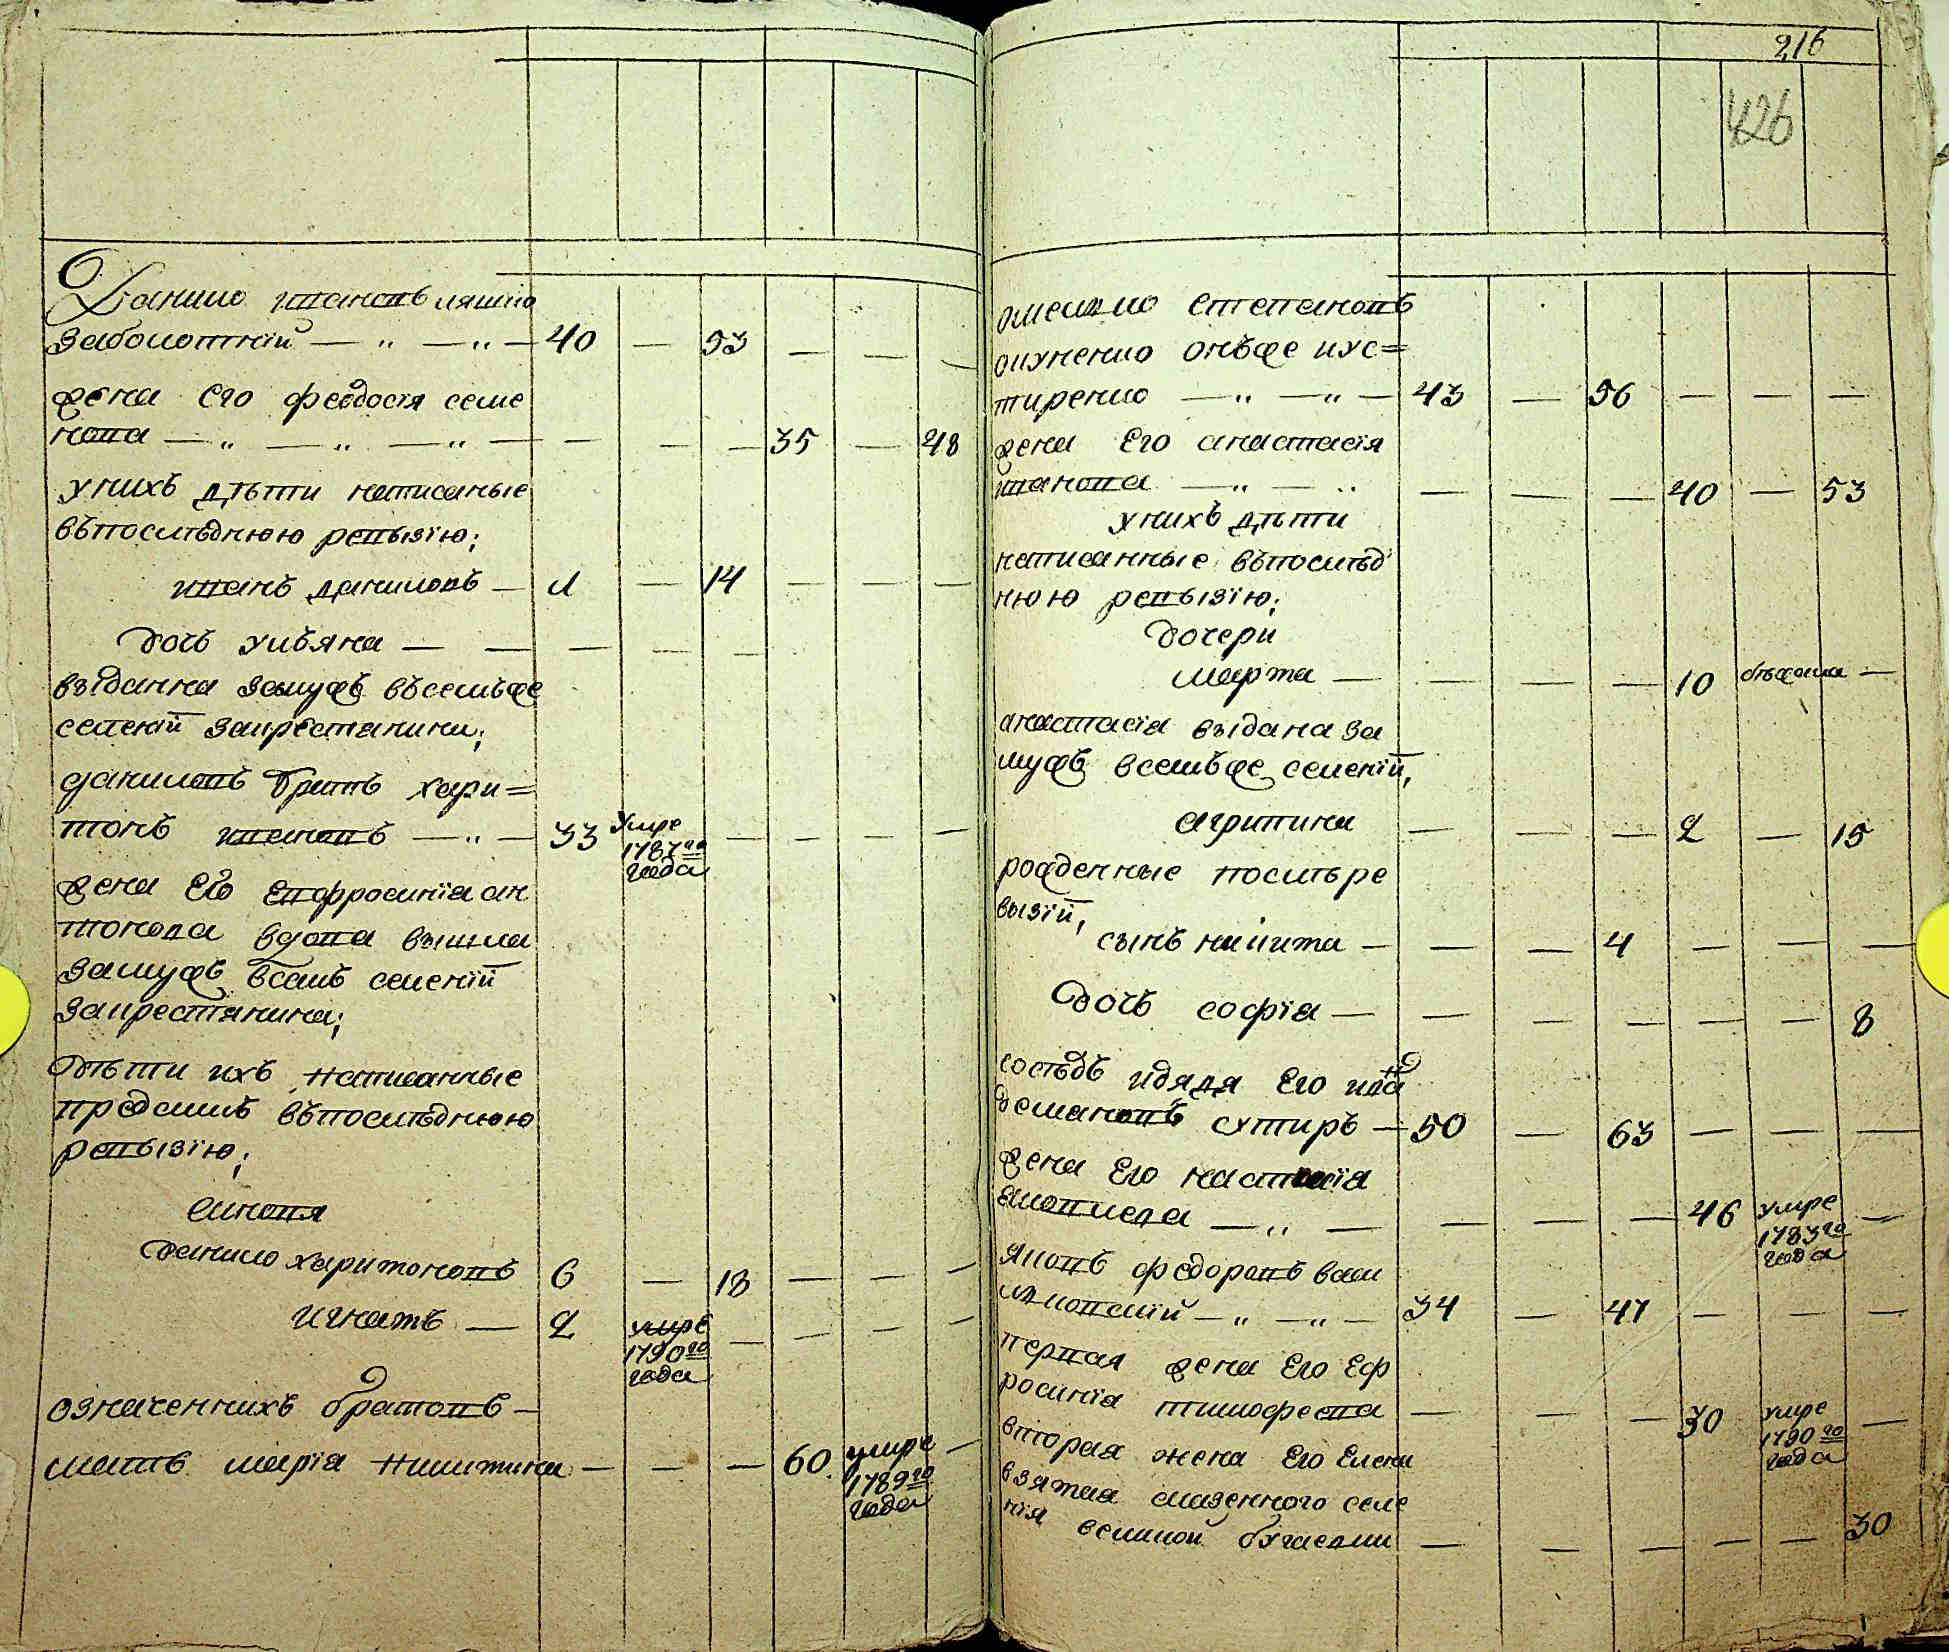 Данило ивановъ ляшко
заболотній — „ — „ — 40 — 53 — — —
жена его феодосія семе
нова — „ — „ — „ — — — — 35 — 48
унихъ дѣти написаные
въпослѣднюю ревызію;
иванъ даниловъ — 1 — 14 — — —
дочь ульяна — — — — —
взіданна замужъ въсемъже
селеніи закрестянины;
даниловъ братъ хари=
тонъ ивановъ — „ — 33 умре 1787го года — — — —
жена его евфросиніа ан
тонова вдова вышла
замужъ всемъ селеніи
закрестянина;
дѣти ихъ написанные
предсимъ въпослѣднюю
ревызію;
синовя
данило харитоновъ 6 — 18 — — —
игнатъ — 2 умре 1790го года — — — —
означеннихъ братовъ —
мать марія никитина — — — 60 умре 1789го года —
216
426
омелко степановъ
онъже кус=
тиренко — „ — „ — 43 — 56 — — —
жена его анастасія
иванова — „ — „ — — — 40 — 53
унихъ дѣти
написанные въпослѣд
нюю ревызію;
дочери
марта — — — — 10 бѣжала —
анастасіа взідана за
мужъ всемъже селеніи,
агрипина — — — 2 — 15
рожденные послѣ ре
вызіи,
сынъ никита — — — 4 — — —
дочь софіа — — — — — — 8
сосѣдъ идядя его
демановъ сутиръ — 50 — 63 — — —
жена его настасіа
— „ — — — — 46 умре 1783го года —
яковъ федоровъ ваш
— „ — „ — 34 — 47 — — —
первая жена его еф
росиніа тимофеева — — — 30 умре 1790го года —
вторая жена его елена
взятая казенного селе
нія великой бугаевки — — — — — 30